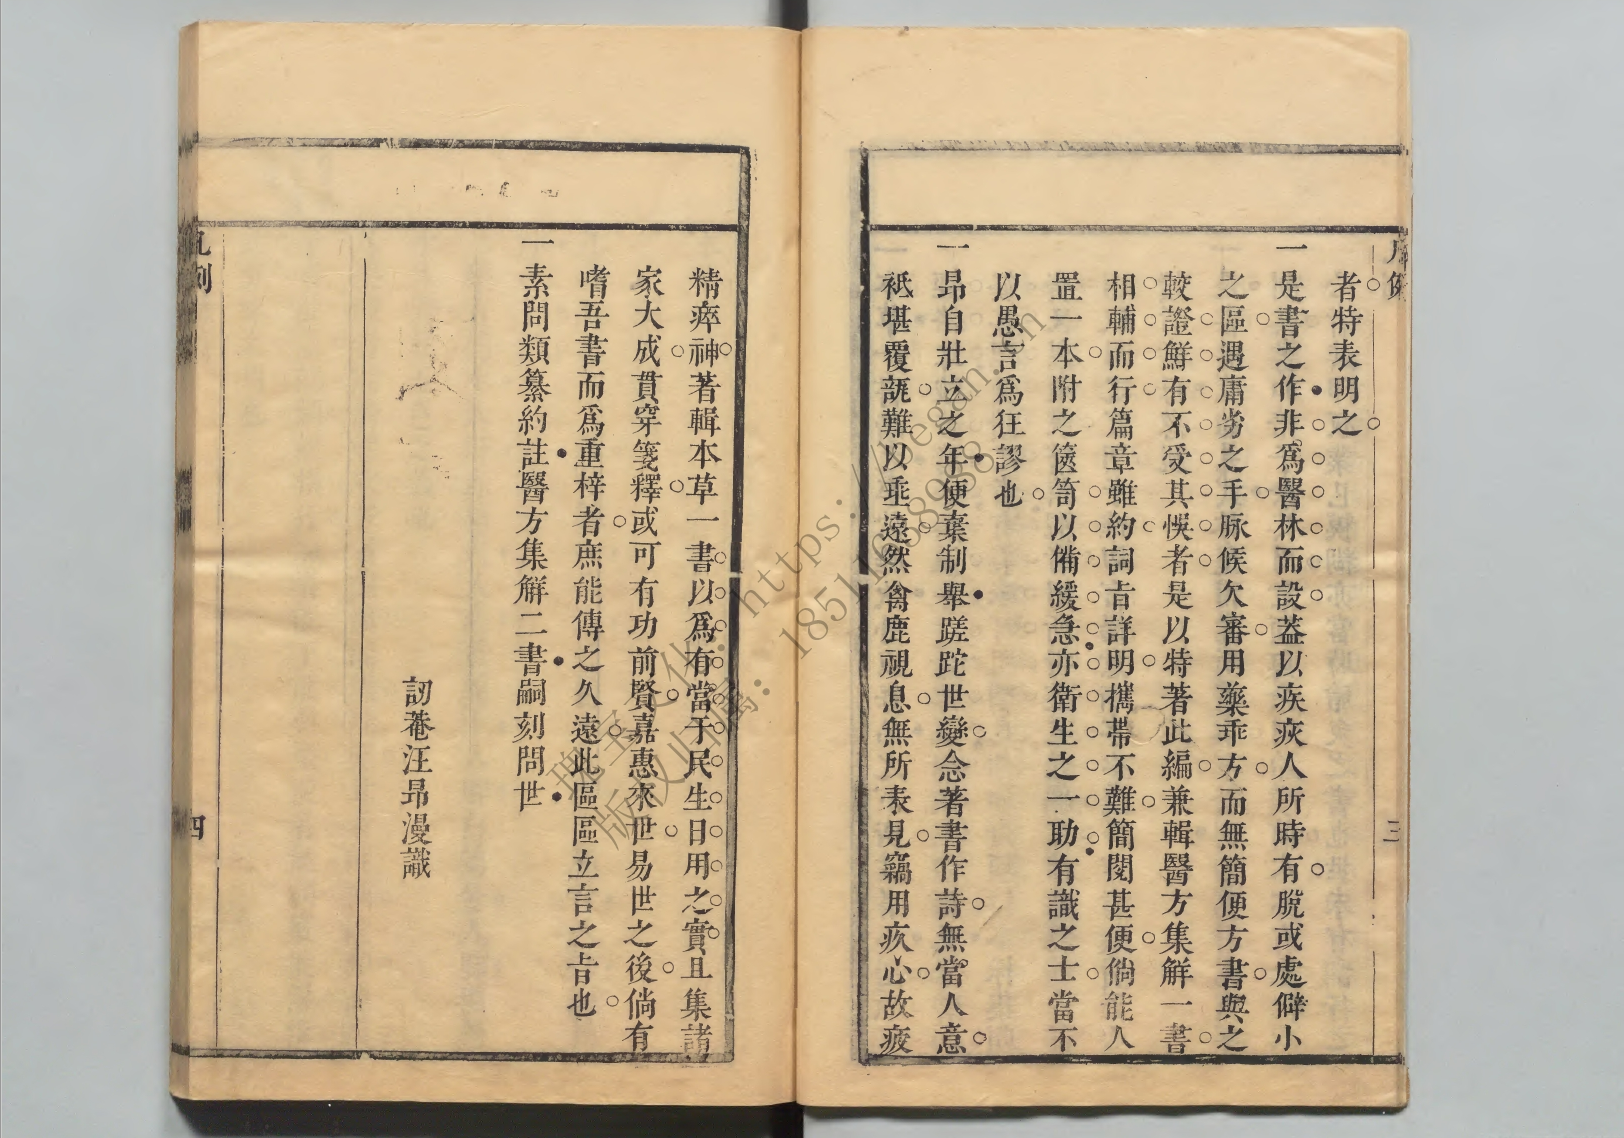 凡例
三
者特表明之
一是書之作非爲醫林而設葢以疾疢人所時有脫或處僻小
之區遇庸劣之手脉候欠審用藥乖方而無簡便方書與之
較證鮮有不受其悞者是以特著此編兼輯醫方集觧一書
相輔而行篇章雖約詞旨詳明攜帶不難簡閱甚便倘能人
置一本附之篋笥以備緩急亦衛生之一助有識之士當不
以愚言爲狂謬也
一昂自壯立之年便棄制舉蹉跎世變念著書作詩無當人意
祇堪覆瓿難以垂遠然禽鹿視息無所表見竊用疚心故疲
精瘁神著輯本草一書以爲有當于民生日用之實且集諸
家大成貫穿箋釋或可有功前賢嘉惠來世易世之後倘有
嗜吾書而爲重梓者庶能傳之久遠此區區立言之旨也
一素問類纂約註醫方集觧二書嗣刻問世
訒菴汪昂漫識
凡例
四
https://began.cn
18511688988
版权归属：